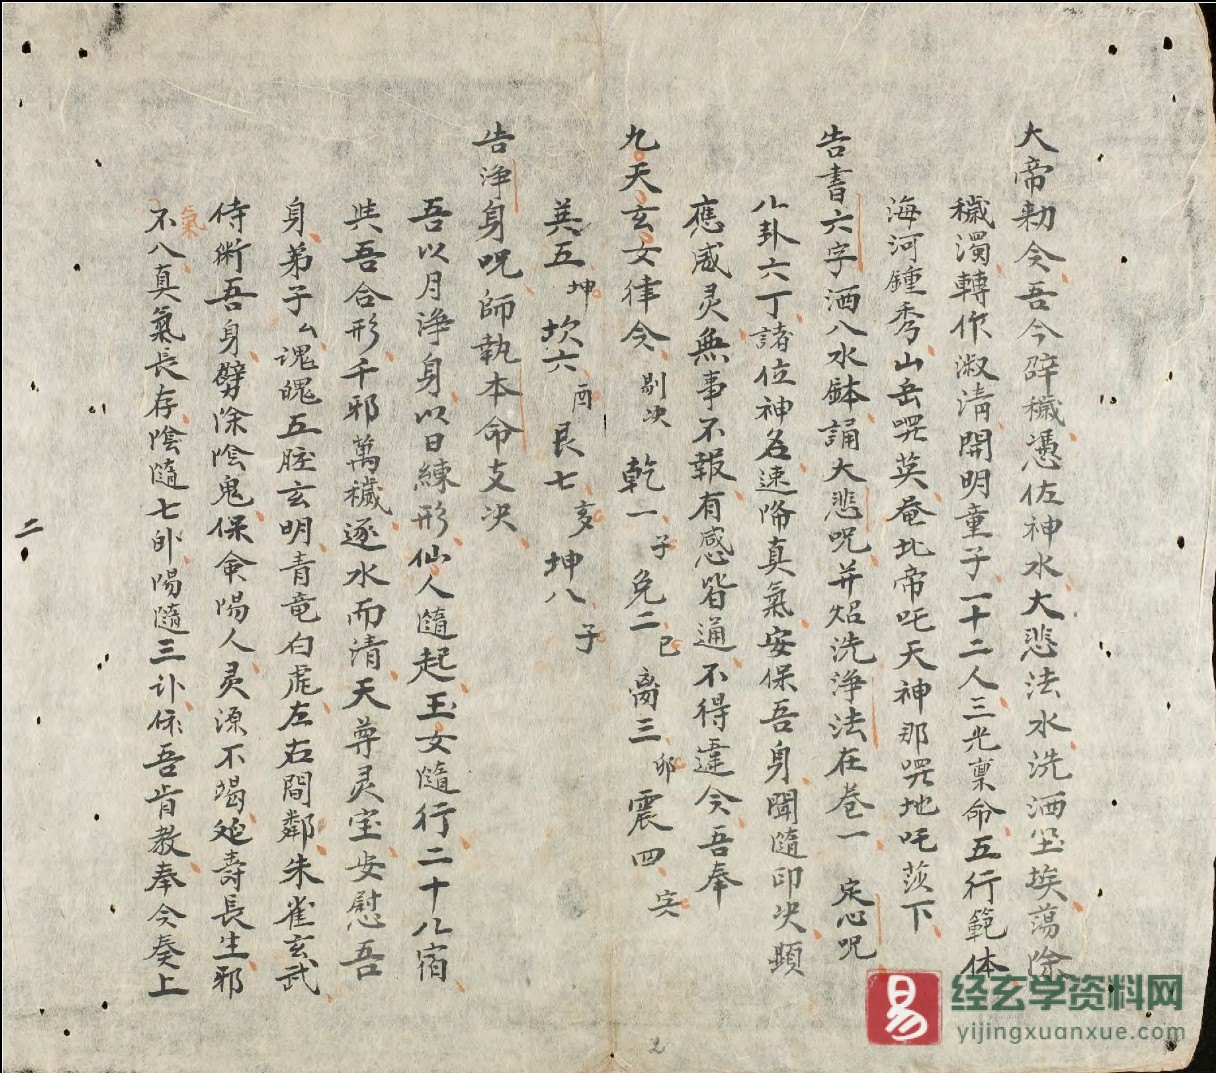 大帝勅令吾今辟穢憑佐神水大悲法水洗洒尘埃蕩除
穢濁轉作淑清開明童子一十二人三光稟命五行範体
海河鍾秀山岳哭英奄北帝吒天神那哭地吒莎下
告書六字洒八水鉢誦大悲呪并炤洗淨法在卷一 定心呪
八卦六丁諸位神名速降真氣安保吾身聞隨印决顯
應感灵無事不報有感皆通不得違令吾奉
九天玄女律令 剔决 乾一 子 免二 巳 离三 卯 震四
英五 坤 坎六 酉 艮七 亥 坤八 子
告淨身呪師執本命支决
吾以月淨身以日練形仙人隨起玉女隨行二十八宿
與吾合形千邪萬穢逐水而清天尊灵宝安慰吾
身弟子厶魂魄五脏玄明青竜白虎左右間鄰朱雀玄武
侍衛吾身劈除陰鬼保命陽人灵源不竭延壽長生邪
氣
不入真氣長存陰隨七外陽隨三卦依吾肯教奉令奏上
二
2
易
经玄学资料网
yijingxuanxue.com